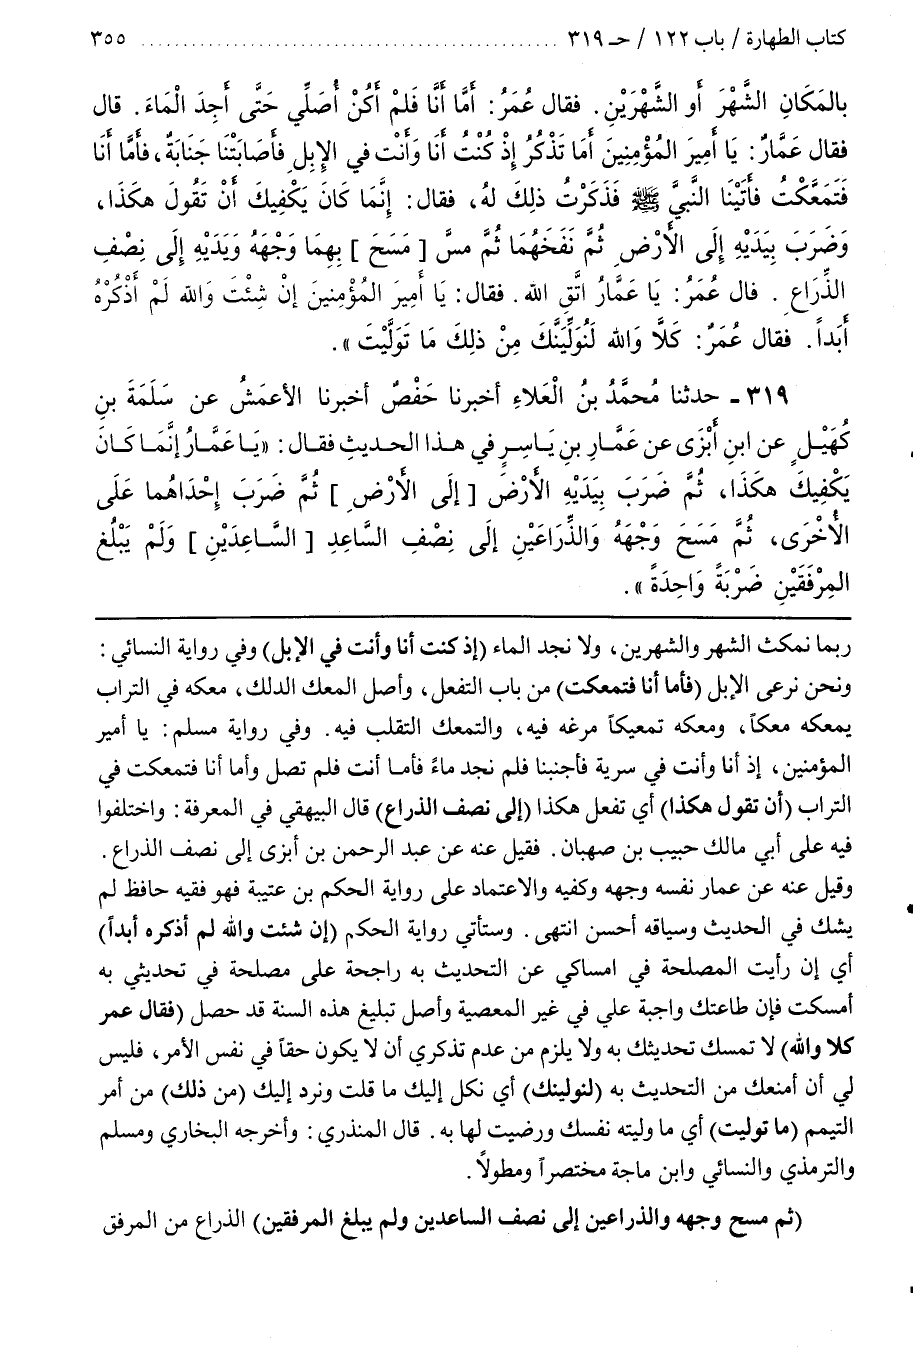 كتاب الطهارة / باب ١٢٢ / حـ ٣١٩ ............................................................ ٣٥٥
بالمَكَانِ الشَّهْرَ أو الشَّهْرَيْنِ. فقال عُمَرُ: أَمَّا أَنَّا فَلَمْ أَكُنْ أُصَلِّي حَتَّى أَجِدَ الْمَاءَ. قال
فقال عَمَّارٌ: يَا أَمِيرَ المُؤْمِنِينَ أَمَا تَذْكُرُ إِذْ كُنْتُ أنَا وَأَنْتَ في الإِبِلِ فأَصَابَتْنَا جَنَابَةٌ، فأَمَّا أنَا
فَتَمَعَّكْتُ فأَتَيْنَا النَّبيَّ ﷺ فَذَكَرْتُ ذلِكَ لهُ، فقال: إِنَّمَا كَانَ يَكْفِيكَ أَنْ تَقُولَ هكَذَا،
وَضَرَبَ بِيَدَيْهِ إِلَى الأَرْضِ ثُمَّ نَفَخَهُمَا ثُمَّ مسَّ [ مَسَحَ ] بِهِمَا وَجْهَهُ وَيَدَيْهِ إِلَى نِصْفِ
الذِّرَاعِ. فال عُمَرُ: يَا عَمَّارُ اتَّقِ الله. فقال: يَا أَمِيرَ المُؤْمِنِينَ إِنْ شِئْتَ وَالله لَمْ أَذْكُرْهُ
أَبَداً. فقال عُمَرُ: كَلَّا وَالله لَنُوَلِّيَنَّكَ مِنْ ذلِكَ مَا تَوَلَّيْتَ».
٣١٩ ـ حدثنا مُحمَّدُ بنُ الْعَلاءِ أخبرنا حَفْصٌ أخبرنا الأعمَشُ عن سَلَمَةَ بنِ
كُهَيْلٍ عن ابنِ أَبْزَى عن عَمَّارِ بنِ يَاسِرٍ في هذا الحديثِ فقال: «يَا عَمَّارُ إِنَّمَا كَانَ
يَكْفِيكَ هكَذَا، ثُمَّ ضَرَبَ بِيَدَيْهِ الأَرْضَ [ إِلَى الأَرْضِ ] ثُمَّ ضَرَبَ إِحْدَاهُما عَلَى
الأُخْرَى، ثُمَّ مَسَحَ وَجْهَهُ وَالذِّرَاعَيْنِ إِلَى نِصْفِ السَّاعِدِ [ السَّاعِدَيْنِ ] وَلَمْ يَبْلُغِ
المِرْفَقَيْنِ ضَرْبَةً وَاحِدَةً».
ربما نمكث الشهر والشهرين، ولا نجد الماء (إذ كنت أنا وأنت في الإبل) وفي رواية النسائي:
ونحن نرعى الإبل (فأما أنا فتمعكت) من باب التفعل، وأصل المعك الدلك، معكه في التراب
يمعكه معكاً، ومعكه تمعيكاً مرغه فيه، والتمعك التقلب فيه. وفي رواية مسلم: يا أمير
المؤمنين، إذ أنا وأنت في سرية فأجنبنا فلم نجد ماءً فأما أنت فلم تصل وأما أنا فتمعكت في
التراب (أن تقول هكذا) أي تفعل هكذا (إلى نصف الذراع) قال البيهقي في المعرفة: واختلفوا
فيه على أبي مالك حبيب بن صهبان. فقيل عنه عن عبد الرحمن بن أبزى إلى نصف الذراع.
وقيل عنه عن عمار نفسه وجهه وكفيه والاعتماد على رواية الحكم بن عتيبة فهو فقيه حافظ لم
يشك في الحديث وسياقه أحسن انتهى. وستأتي رواية الحكم (إن شئت والله لم أذكره أبداً)
أي إن رأيت المصلحة في امساكي عن التحديث به راجحة على مصلحة في تحديثي به
أمسكت فإن طاعتك واجبة علي في غير المعصية وأصل تبليغ هذه السنة قد حصل (فقال عمر
كلا والله) لا تمسك تحديثك به ولا يلزم من عدم تذكري أن لا يكون حقاً في نفس الأمر، فليس
لي أن أمنعك من التحديث به (لنولينك) أي نكل إليك ما قلت ونرد إليك (من ذلك) من أمر
التيمم (ما توليت) أي ما وليته نفسك ورضيت لها به. قال المنذري: وأخرجه البخاري ومسلم
والترمذي والنسائي وابن ماجة مختصراً ومطولاً.
(ثم مسح وجهه والذراعين إلى نصف الساعدين ولم يبلغ المرفقين) الذراع من المرفق